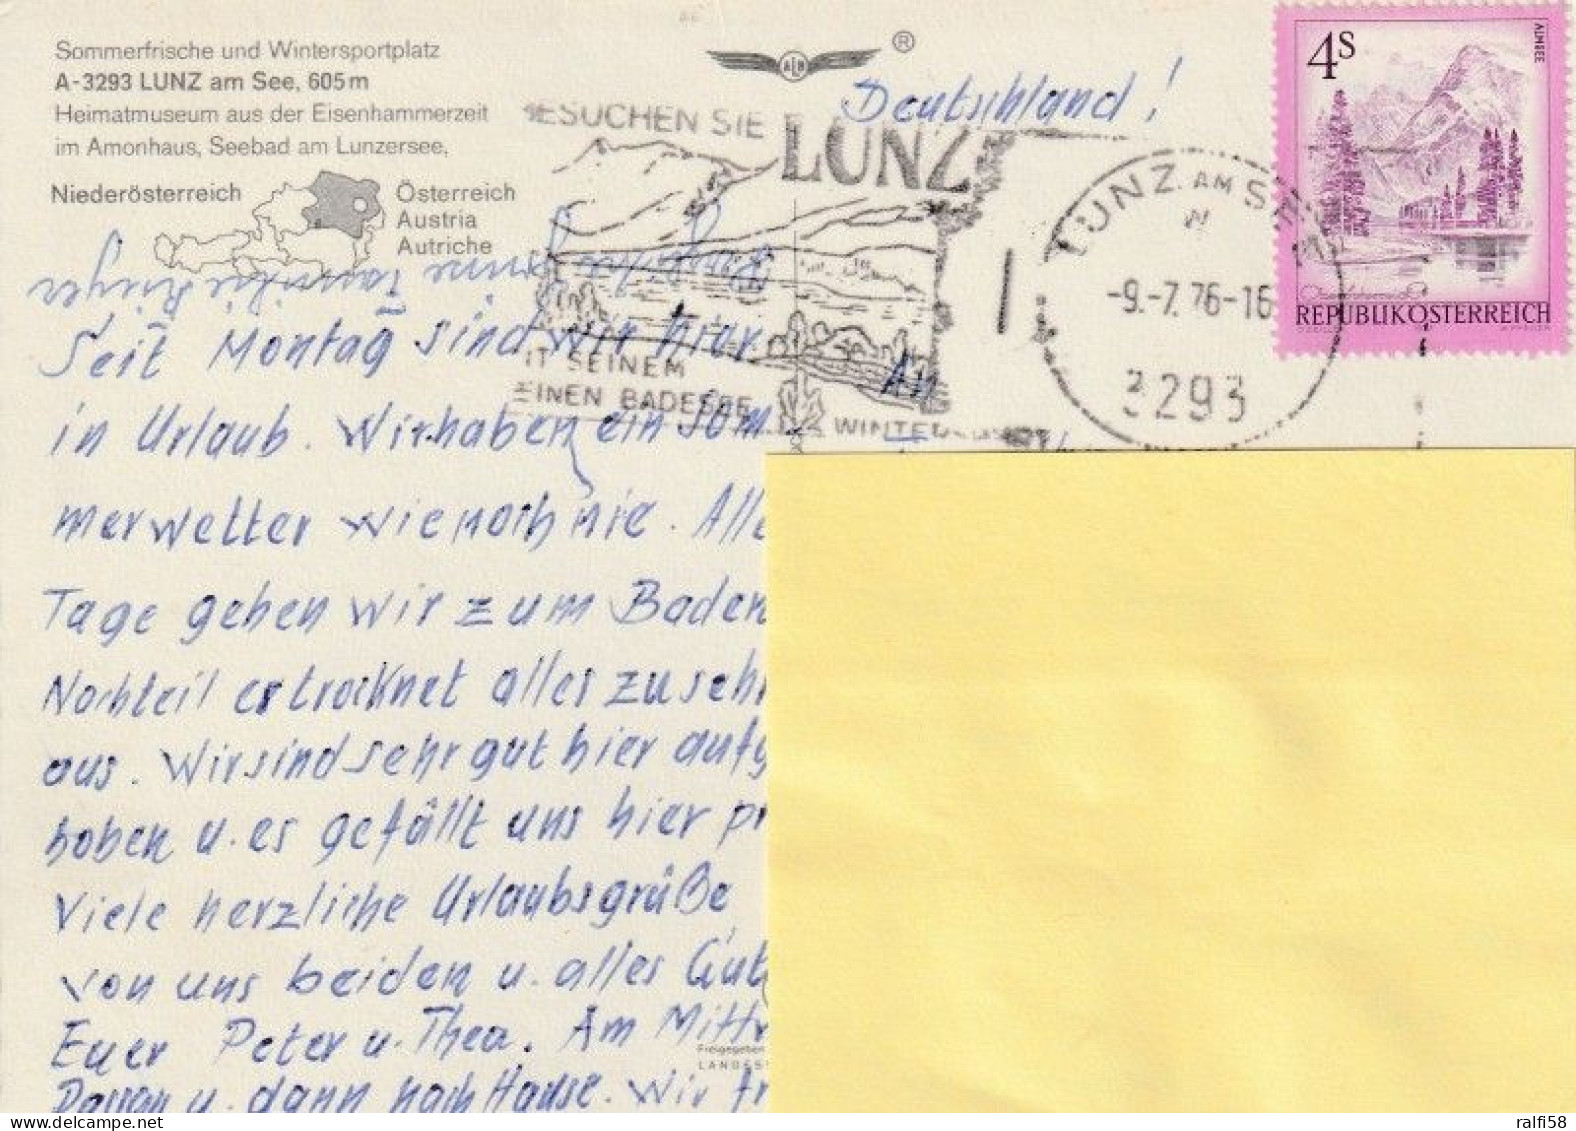 Sommerfrische und Wintersportplatz
A-3293 LUNZ am See, 605m
Heimatmuseum aus der Eisenhammerzeit
im Amonhaus, Seebad am Lunzersee,
Niederösterreich
Österreich
Austria
Autriche
®
Deutschland!
ESUCHEN SIE LUNZ
IT SEINEM
EINEN BADESEE
WINTER
LUNZ AM S
-9.-7.76-16
3293
4S
ALMSEE
REPUBLIK ÖSTERREICH
An
Familie
Seit Montag sind wir hier
in Urlaub. Wir haben ein Som
merwetter wie noch nie. Alle
Tage gehen wir zum Baden
Nachteil es trocknet alles zu sehr
aus. Wir sind sehr gut hier aufg
hoben u. es gefällt uns hier pr
Viele herzliche Urlaubsgrüße
von uns beiden u. alles Gut
Euer Peter u. Thea. Am Mittw
Passau u. dann nach Hause. Wir fr
Freigegeben
LANDES
ralfi58